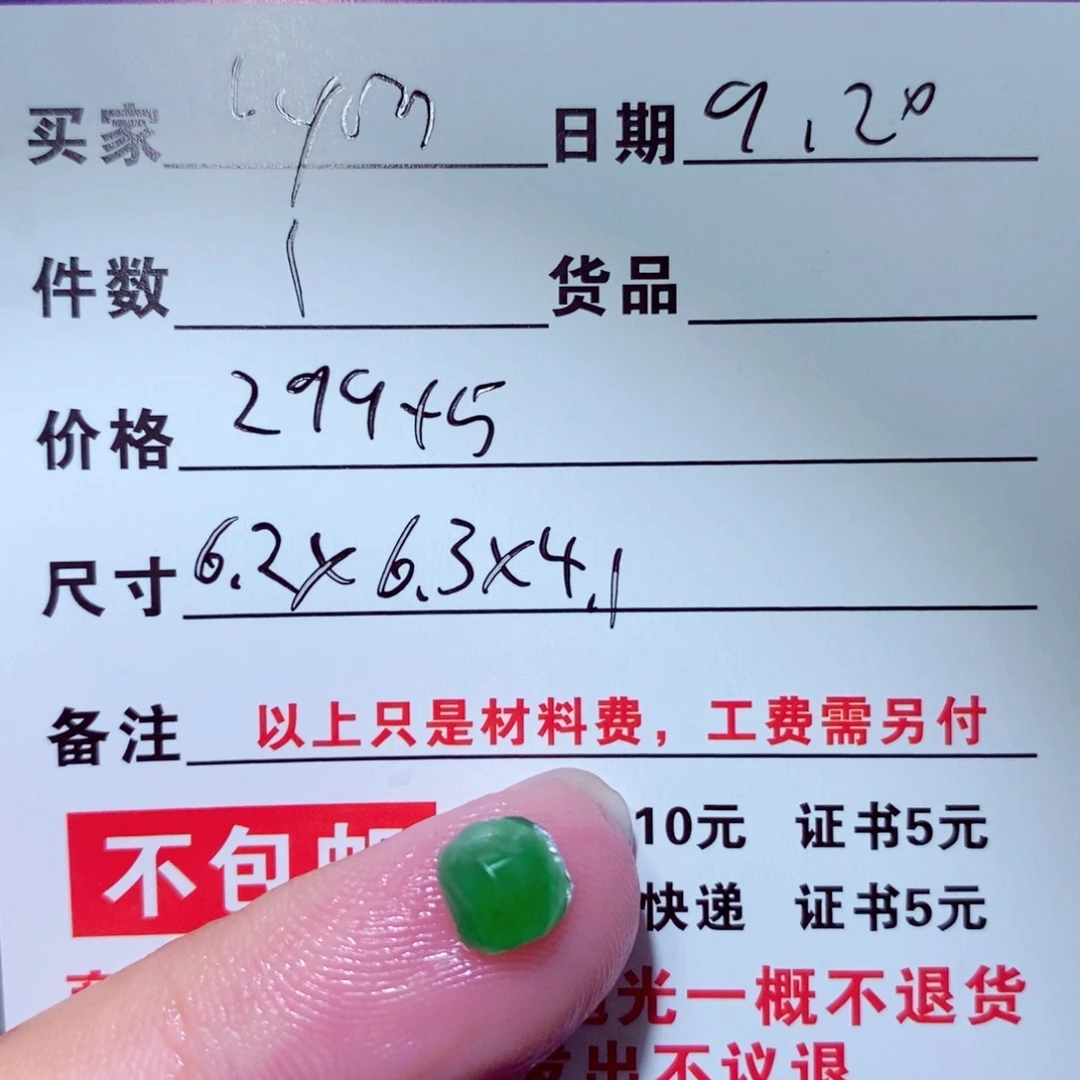 买家 日期 9.20
件数 1 货品
价格 299+5
尺寸 6.2x6.3x4.1
备注 以上只是材料费，工费需另付
不包 10元 证书5元
快递 证书5元
光一概不退货
发出不议退